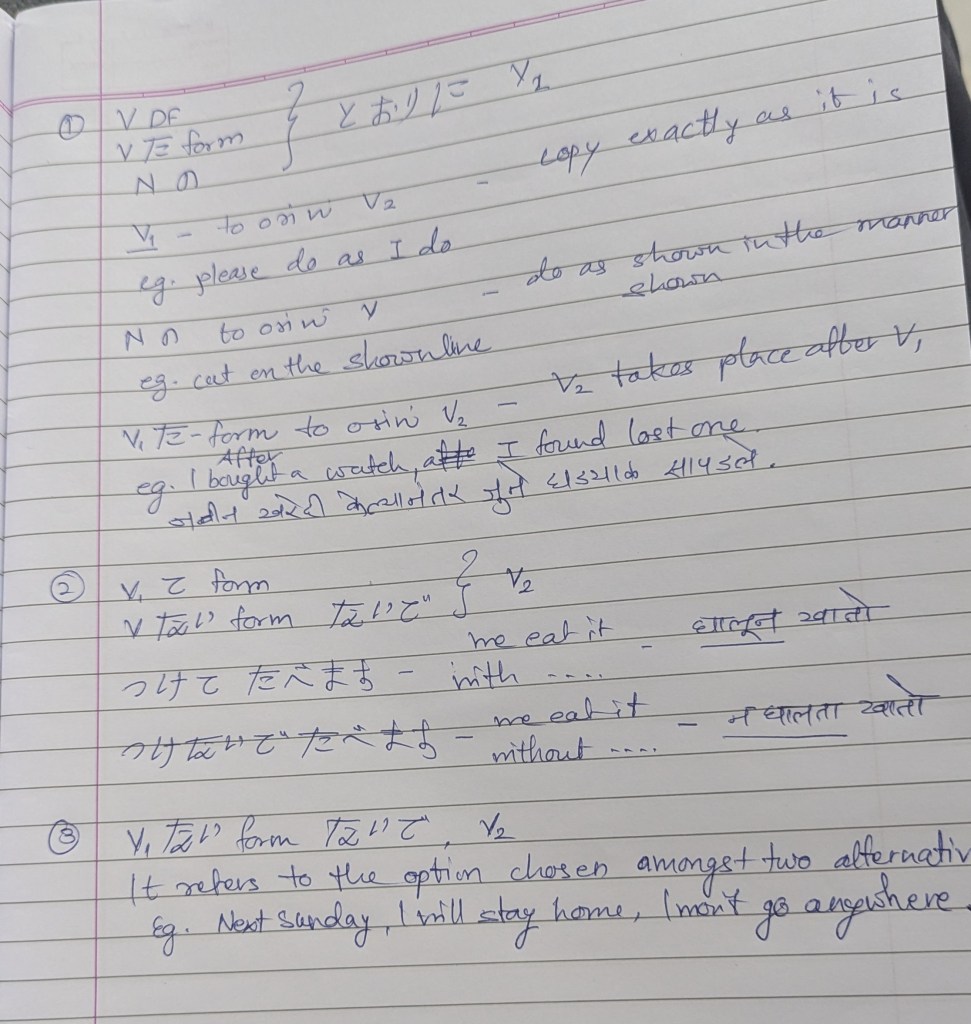 ① V DF
V た form } とおりに V2
N の
V1 - to oori ni V2 - copy exactly as it is
eg. please do as I do
N の to oori ni V - do as shown in the manner shown
eg. cut on the shown line
V1 た-form to oori ni V2 - V2 takes place after V1
eg. After I bought a watch, I found lost one.
नवीन खरेदी केल्यानंतर जुने घड्याळ सापडले.
② V1 て form
V ない form ないで } V2
つけて たべます - we eat it with .... - घालून खातो
つけないで たべます - we eat it without .... - न घालता खातो
③ V1 ない form ないで, V2
It refers to the option chosen amongst two alternativ
Eg. Next Sunday, I will stay home, I won't go anywhere.